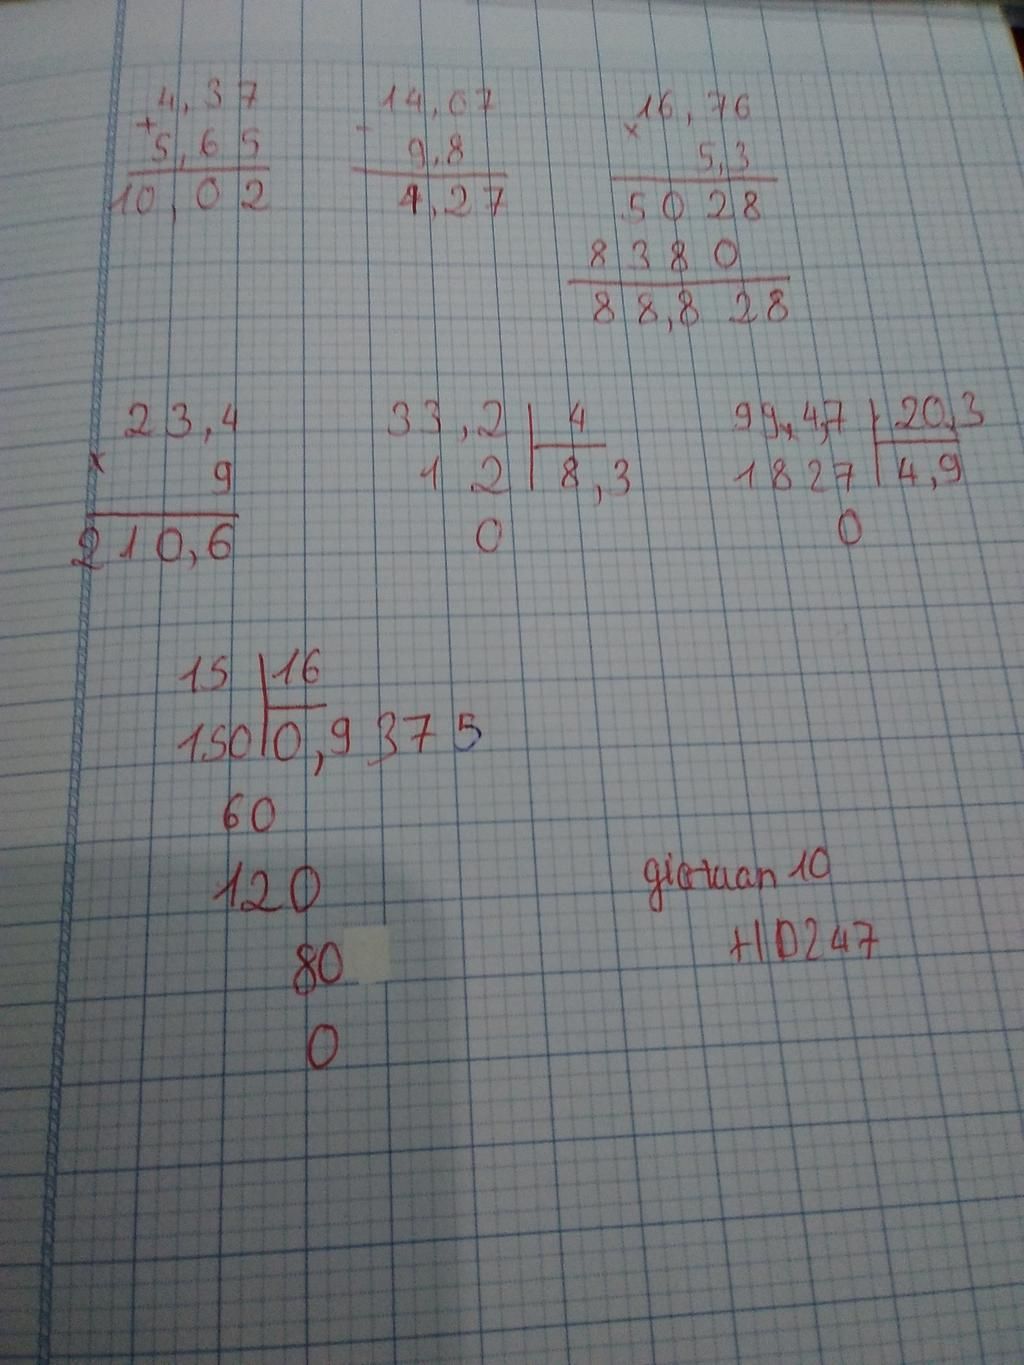 4,37
+
5,65
10,02
14,07
-
9,8
4,27
16,76
×
5,3
5028
8380
88,828
23,4
×
9
210,6
33,2 4
12 8,3
0
99,4,7 20,3
1827 4,9
0
15 16
150 0,9375
60
120
80
0
10
+10247